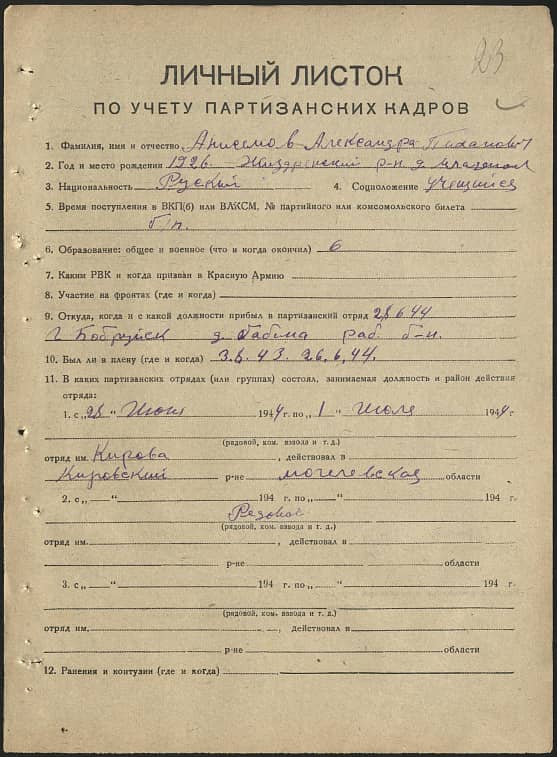 23
ЛИЧНЫЙ ЛИСТОК
ПО УЧЕТУ ПАРТИЗАНСКИХ КАДРОВ
1. Фамилия, имя и отчество Анисемов Александра
2. Год и место рождения 1926. р-н д.
3. Национальность Руский 4. Соцположение учещийся
5. Время поступления в ВКП(б) или ВЛКСМ, № партийного или комсомольского билета
б/п.
6. Образование: общее и военное (что и когда окончил) 6
7. Каким РВК и когда призван в Красную Армию
8. Участие на фронтах (где и когда)
9. Откуда, когда и с какой должности прибыл в партизанский отряд 28 6 44
г Бобруйск д. раб.
10. Был ли в плену (где и когда) 3.8.43. 26.6.44.
11. В каких партизанских отрядах (или группах) состоял, занимаемая должность и район действия
отряда:
1. с „28 " Июн 1944 г. по „ 1 " Июля 1944 г
(рядовой, ком. взвода и т. д.)
отряд им. Кирова , действовал в
Кировский р-не могелевская области
2. с „ — " 194 г. по „ — " 194 г
Редовой
(рядовой, ком. взвода и т. д.)
отряд им. , действовал в
р-не области
3. с „ — " 194 г. по „ — " 194 г.
(рядовой, ком. взвода и т. д.)
отряд им. , действовал в
р-не области
12. Ранения и контузии (где и когда)